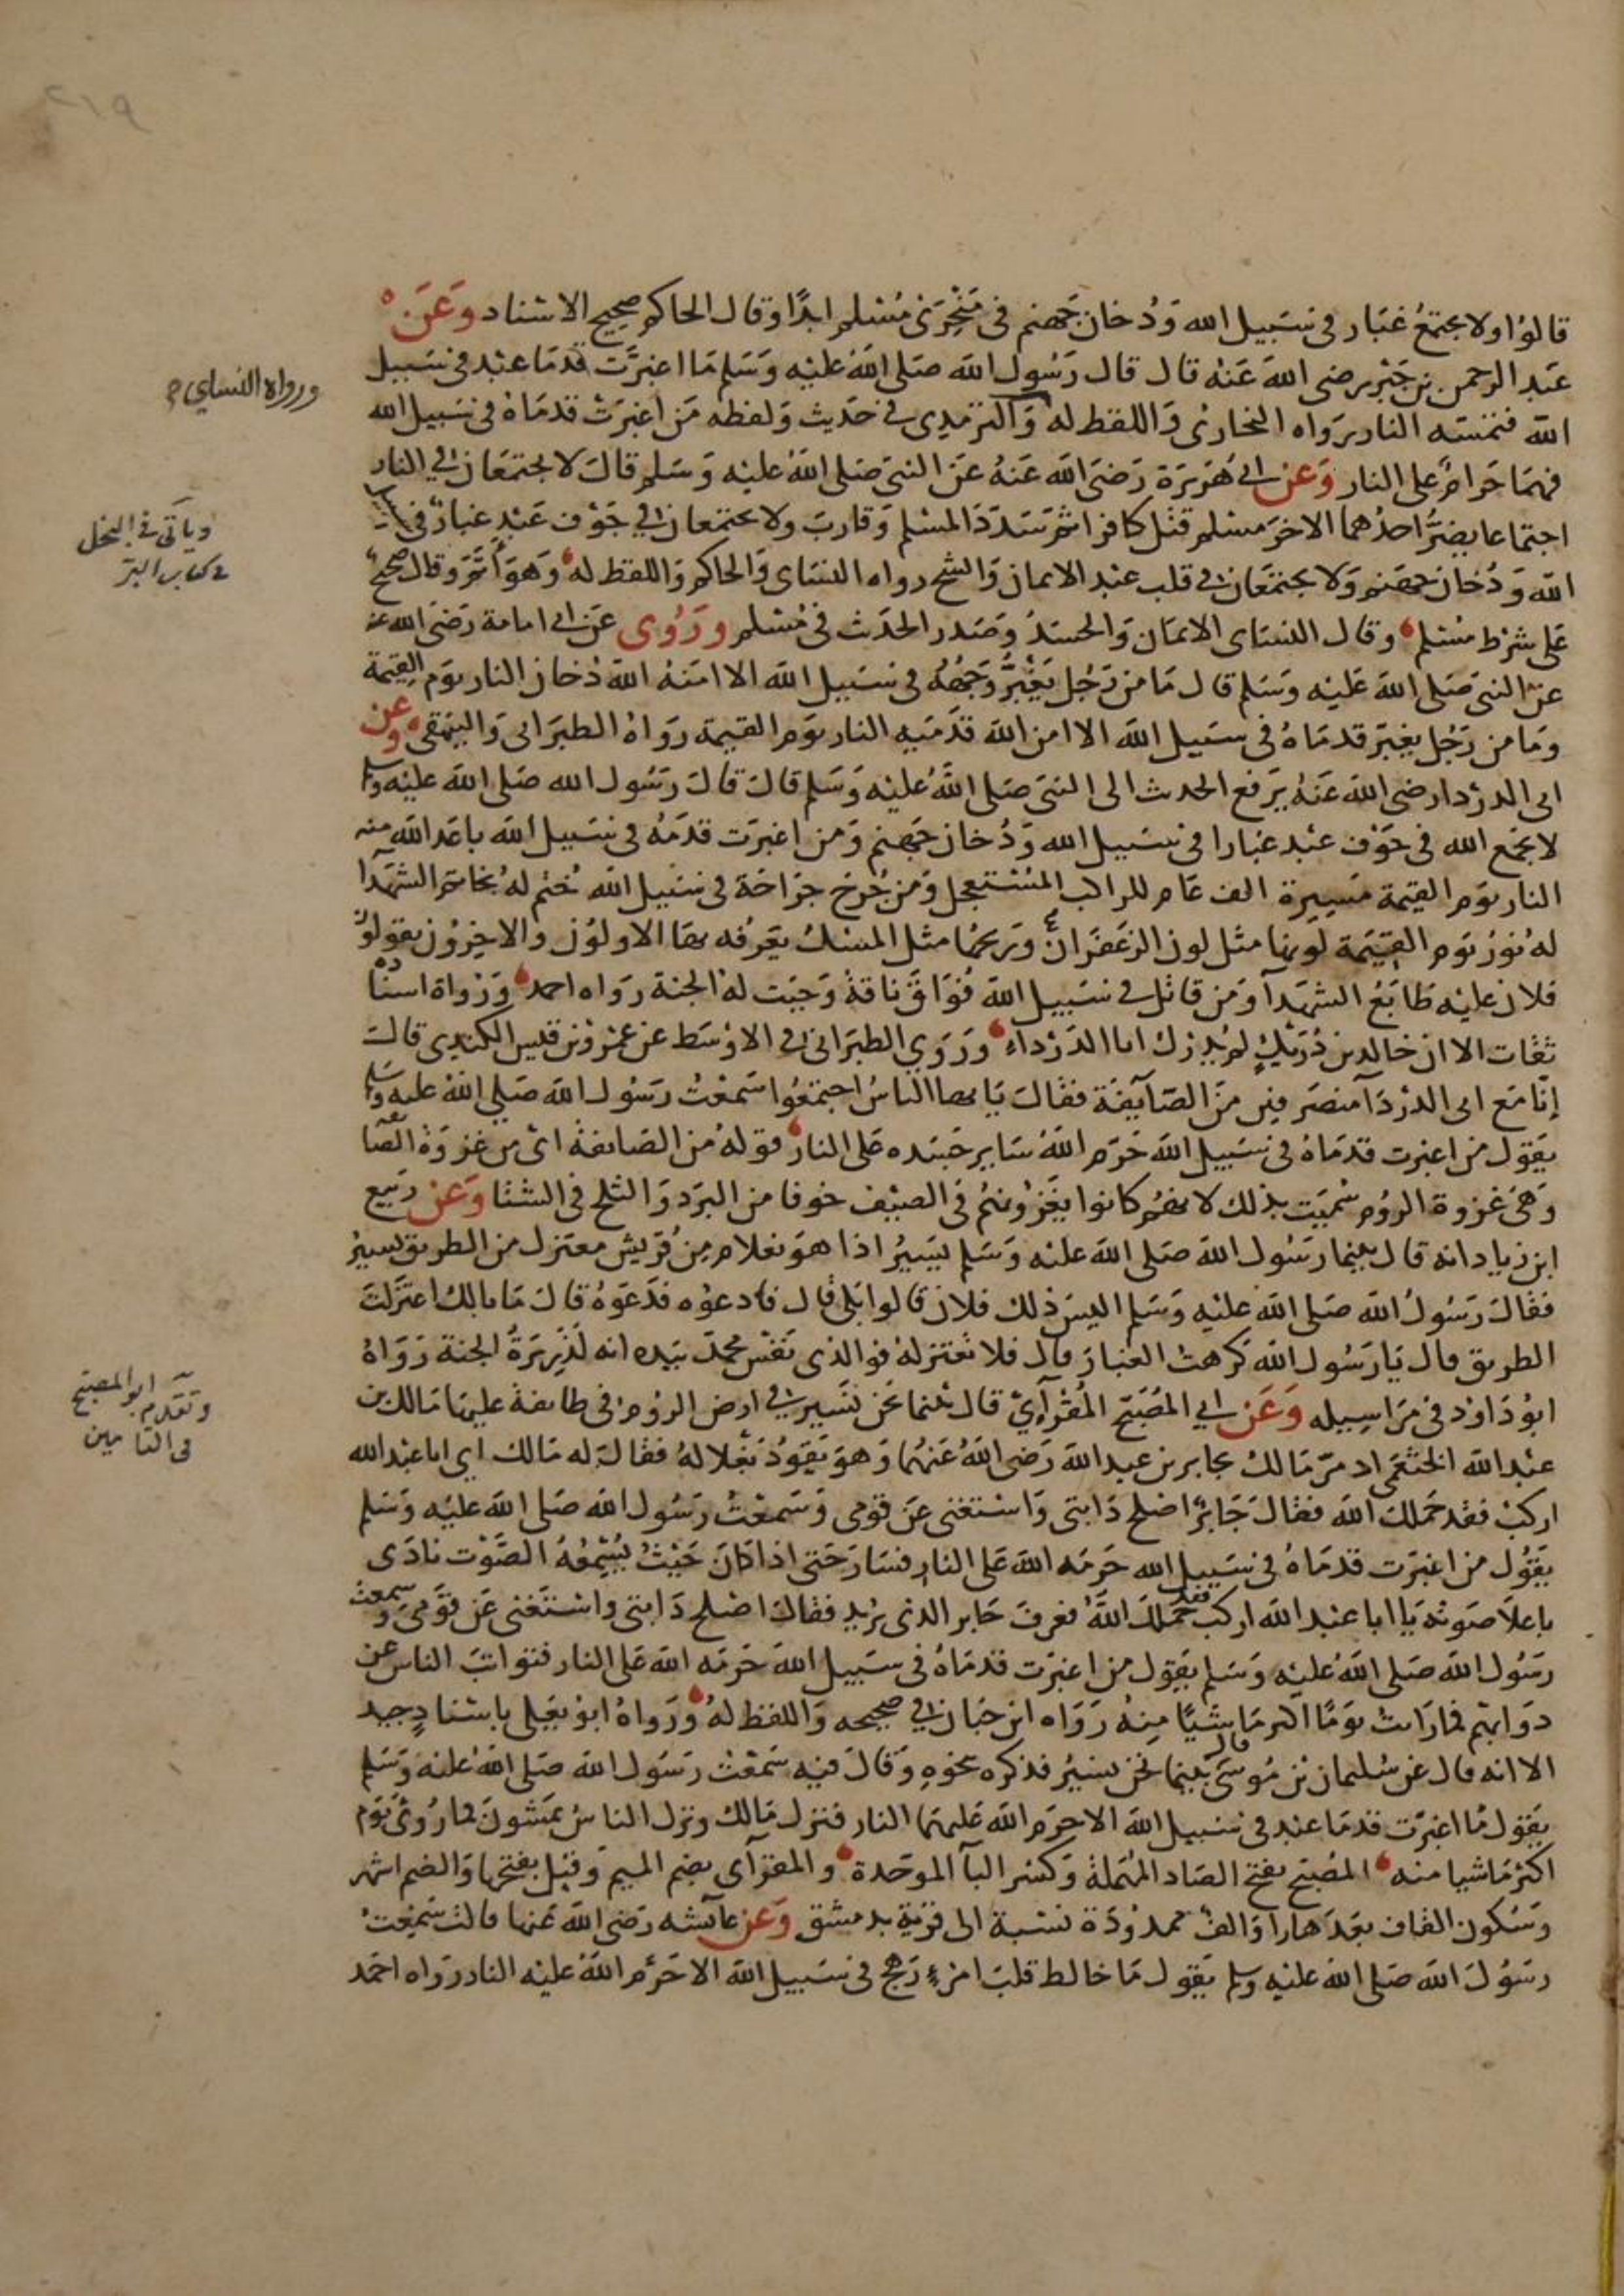 ٢١٩
قالوا ولا يجتمع غبار في سبيل الله ودخان جهنم في منخري مسلم ابدا وقال الحاكم صحيح الاسناد وعن
عبد الرحمن بن جبر رضي الله عنه قال قال رسول الله صلى الله عليه وسلم ما اغبرت قدما عبد في سبيل
الله فتمسه النار رواه البخاري واللفظ له والترمذي في حديث ولفظه من اغبرت قدماه في سبيل الله
فهما حرام على النار وعن ابي هريرة رضي الله عنه عن النبي صلى الله عليه وسلم قال لا يجتمعان في النار
اجتماعا يضر احدهما الاخر مسلم قتل كافرا ثم سدد المسلم وقارب ولا يجتمعان في جوف عبد غبار في سبيل
الله ودخان جهنم ولا يجتمعان في قلب عبد الايمان والشح رواه النساي والحاكم واللفظ له وهو اتم وقال صحيح
على شرط مسلم وقال النساي الايمان والحسد وصدر الحديث في مسلم وروى عن ابي امامة رضي الله عنه
عن النبي صلى الله عليه وسلم قال ما من رجل يغبر وجهه في سبيل الله الا امنه الله دخان النار يوم القيمة
وما من رجل يغبر قدماه في سبيل الله الا امن الله قدميه النار يوم القيمة رواه الطبراني والبيهقي وعن
ابي الدردا رضي الله عنه يرفع الحديث الى النبي صلى الله عليه وسلم قال قال رسول الله صلى الله عليه وسلم
لا يجمع الله في جوف عبد غبارا في سبيل الله ودخان جهنم ومن اغبرت قدمه في سبيل الله باعد الله منه
النار يوم القيمة مسيرة الف عام للراكب المستعجل ومن جرح جراحة في سبيل الله ختم له بخاتم الشهدا
له نور يوم القيمة لونها مثل لون الزعفران وريحها مثل المسك يعرفه بها الاولون والاخرون يقولون
فلان عليه طابع الشهدا ومن قاتل في سبيل الله فواق ناقة وجبت له الجنة رواه احمد ورواة اسناده
ثقات الا ان خالد بن دريك لم يدرك ابا الدرداء وروى الطبراني في الاوسط عن عمرو بن قيس الكندي قال
انا مع ابي الدردا منصرفين من الصايفة فقال يايها الناس اجتمعوا سمعت رسول الله صلى الله عليه وسلم
يقول من اغبرت قدماه في سبيل الله حرم الله ساير جسده على النار قوله من الصايفة اي من غزوة الصايفة
وهي غزوة الروم سميت بذلك لانهم كانوا يغزونهم في الصيف خوفا من البرد والثلج في الشتا وعن ربيع
ابن زياد انه قال بينما رسول الله صلى الله عليه وسلم يسير اذا هو بغلام من قريش معتزل من الطريق يسير
فقال رسول الله صلى الله عليه وسلم اليس ذلك فلان قالوا بلى قال فادعوه فدعوه قال ما بالك اعتزلت
الطريق قال يا رسول الله كرهت الغبار قال فلا تعتزله فوالذي نفس محمد بيده انه لذريرة الجنة رواه
ابو داود في مراسيله وعن ابي المصبح المقرآي قال بينما نحن نسير في ارض الروم في طايفة عليها مالك بن
عبد الله الخثعمي اذ مر مالك بجابر بن عبد الله رضي الله عنهما وهو يقود بغلا له فقال له مالك اي ابا عبد الله
اركب فقد حملك الله فقال جابر اصلح دابتي واستغني عن قومي وسمعت رسول الله صلى الله عليه وسلم
يقول من اغبرت قدماه في سبيل الله حرمه الله على النار فسار حتى اذا كان حيث يسمعه الصوت نادى
باعلا صوته يا ابا عبد الله اركب فقد حملك الله فعرف جابر الذي يريد فقال اصلح دابتي واستغني عن قومي وسمعت
رسول الله صلى الله عليه وسلم يقول من اغبرت قدماه في سبيل الله حرمه الله على النار فتواثب الناس عن
دوابهم فما رايت يوما اكثر ماشيا منه رواه ابن حبان في صحيحه واللفظ له ورواه ابو يعلى باسناد جيد
الا انه قال عن سليمان بن موسى قال بينما نحن نسير فذكره بنحوه وقال فيه سمعت رسول الله صلى الله عليه وسلم
يقول ما اغبرت قدما عبد في سبيل الله الا حرم الله عليهما النار فنزل مالك ونزل الناس يمشون فما روى يوم
اكثر ماشيا منه المصبح بفتح الصاد المهملة وكسر البا الموحدة والمقرآي بضم الميم وقيل بفتحها والضم اشهر
وسكون القاف بعدها را والف ممدودة نسبة الى قرية بدمشق وعن عآيشه رضي الله عنها قالت سمعت
رسول الله صلى الله عليه وسلم يقول ما خالط قلب امرئ رهج في سبيل الله الا حرم الله عليه النار رواه احمد
ورواه النساي
وياتي في البخل
في كتاب البر
وتقدم ابو المصبح
في التامين